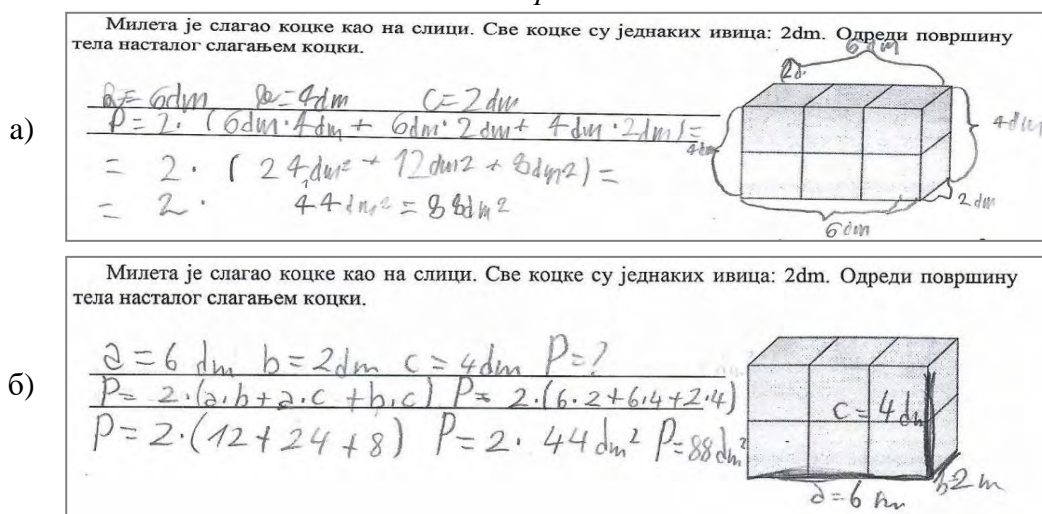 а)
Милета је слагао коцке као на слици. Све коцке су једнаких ивица: 2dm. Одреди површину
тела насталог слагањем коцки.
6 dm
2d.
a=6dm b=4dm c=2dm
P=2·(6dm·4dm+6dm·2dm+4dm·2dm)=
4dm
4dm
= 2·(24dm²+12dm2+8dm2)=
= 2· 44dm²=88dm²
2 dm
6 dm
б)
Милета је слагао коцке као на слици. Све коцке су једнаких ивица: 2dm. Одреди површину
тела насталог слагањем коцки.
a=6 dm b=2dm c=4dm P=?
P=2·(a·b+a·c+b·c) P=2·(6·2+6·4+2·4)
P=2·(12+24+8) P=2·44dm² P=88dm²
c=4d
a=6